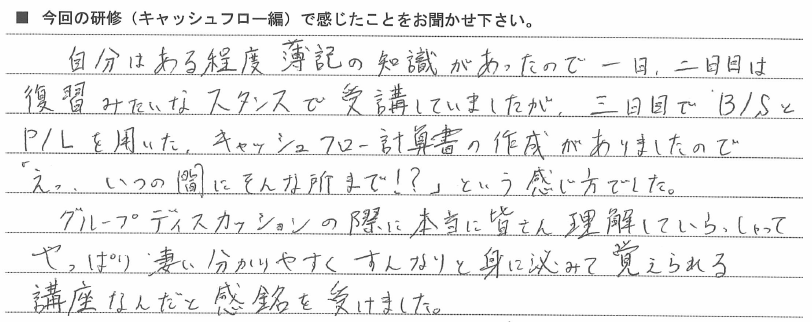 ■ 今回の研修（キャッシュフロー編）で感じたことをお聞かせ下さい。
自分はある程度簿記の知識があったので一日、二日目は
復習みたいなスタンスで受講していましたが、三日目でB/Sと
P/Lを用いた、キャッシュフロー計算書の作成がありましたので
「えっ、いつの間にそんな所まで!?」という感じ方でした。
グループディスカッションの際に本当に皆さん理解していらっしゃって
やっぱり凄い分かりやすくすんなりと身に泌みて覚えられる
講座なんだと感銘を受けました。